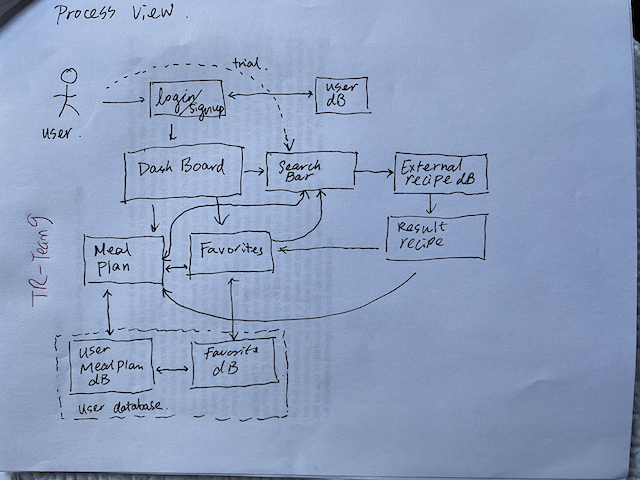 Process View.
trial.
user.
login/
signup
user
dB
Dash Board
Search
Bar
External
recipe dB
Meal
Plan
Favorites
Result
recipe
TR-Team 9
User
MealPlan
dB
Favorite
dB
User database.